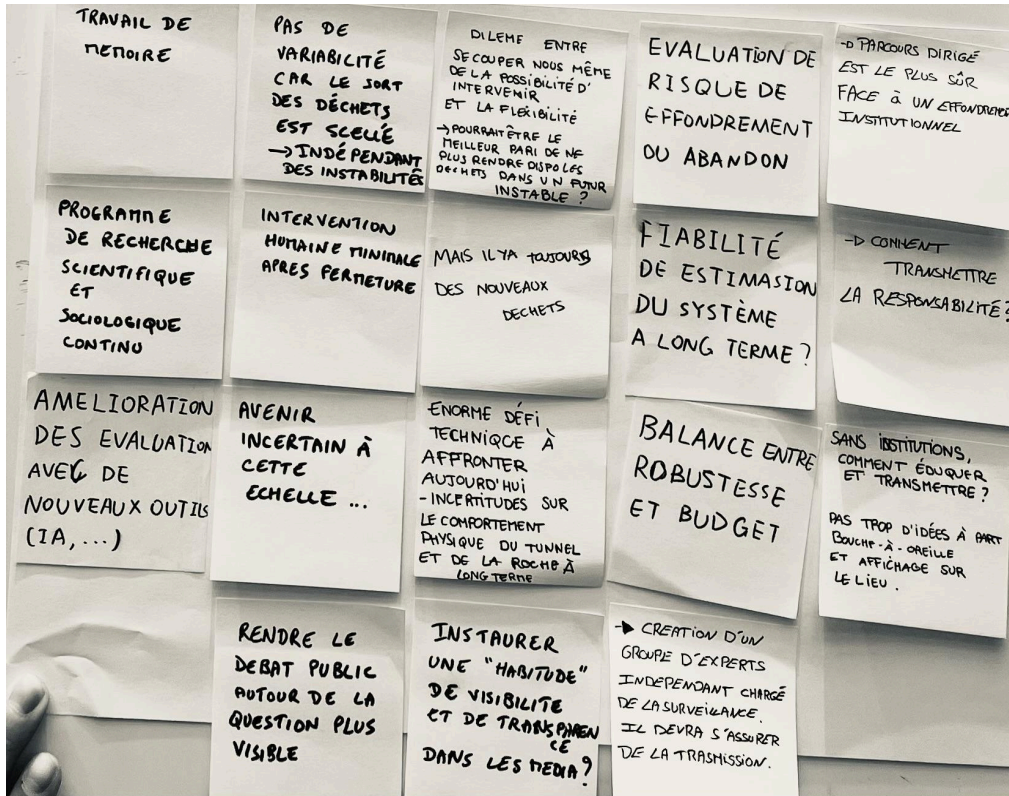 TRAVAIL DE
MEMOIRE
PAS DE
VARIABICITÉ
CAR LE SORT
DES DÉCHETS
EST SCELLÉ
→ INDÉPENDANT
DES INSTABILITÉS
DILEME ENTRE
SE COUPER NOUS MÊME
DE LA POSSIBILITÉ D'
INTERVENIR
ET LA FLEXIBILITÉ
→ POURRAIT ÊTRE LE
MEILLEUR PARI DE NE
PLUS RENDRE DISPO LES
DECHETS DANS UN FUTUR
INSTABLE ?
EVALUATION DE
RISQUE DE
EFFONDREMENT
OU ABANDON
→ PARCOURS DIRIGÉ
EST LE PLUS SÛR
FACE À UN EFFONDREMENT
INSTITUTIONNEL
PROGRAMME
DE RECHERCHE
SCIENTIFIQUE
ET
SOCIOLOGIQUE
CONTINU
INTERVENTION
HUMAINE MINIMALE
APRES FERMETURE
MAIS IL YA TOUJOURS
DES NOUVEAUX
DECHETS
FIABILITÉ
DE ESTIMASION
DU SYSTÈME
A LONG TERME ?
→ COMMENT
TRANSMETTRE
LA RESPONSABILITÉ ?
AMELIORATION
DES EVALUATION
AVEC DE
NOUVEAUX OUTILS
(IA, ...)
AVENIR
INCERTAIN À
CETTE
ECHELLE ...
ENORME DÉFI
TECHNIQUE À
AFFRONTER
AUJOURD'HUI
- INCERTITUDES SUR
LE COMPORTEMENT
PHYSIQUE DU TUNNEL
ET DE LA ROCHE À
LONG TERME
BALANCE ENTRE
ROBUSTESSE
ET BUDGET
SANS INSTITUTIONS,
COMMENT ÉDUQUER
ET TRANSMETTRE ?
PAS TROP D'IDÉES À PART
BOUCHE-À-OREILLE
ET AFFICHAGE SUR
LE LIEU.
RENDRE LE
DEBAT PUBLIC
AUTOUR DE LA
QUESTION PLUS
VISIBLE
INSTAURER
UNE "HABITUDE"
DE VISIBILITE
ET DE TRANSPAREN
CE
DANS LES MEDIA ?
→ CREATION D'UN
GROUPE D'EXPERTS
INDEPENDANT CHARGÉ
DE LA SURVEILLANCE.
IL DEVRA S'ASSURER
DE LA TRASMISSION.